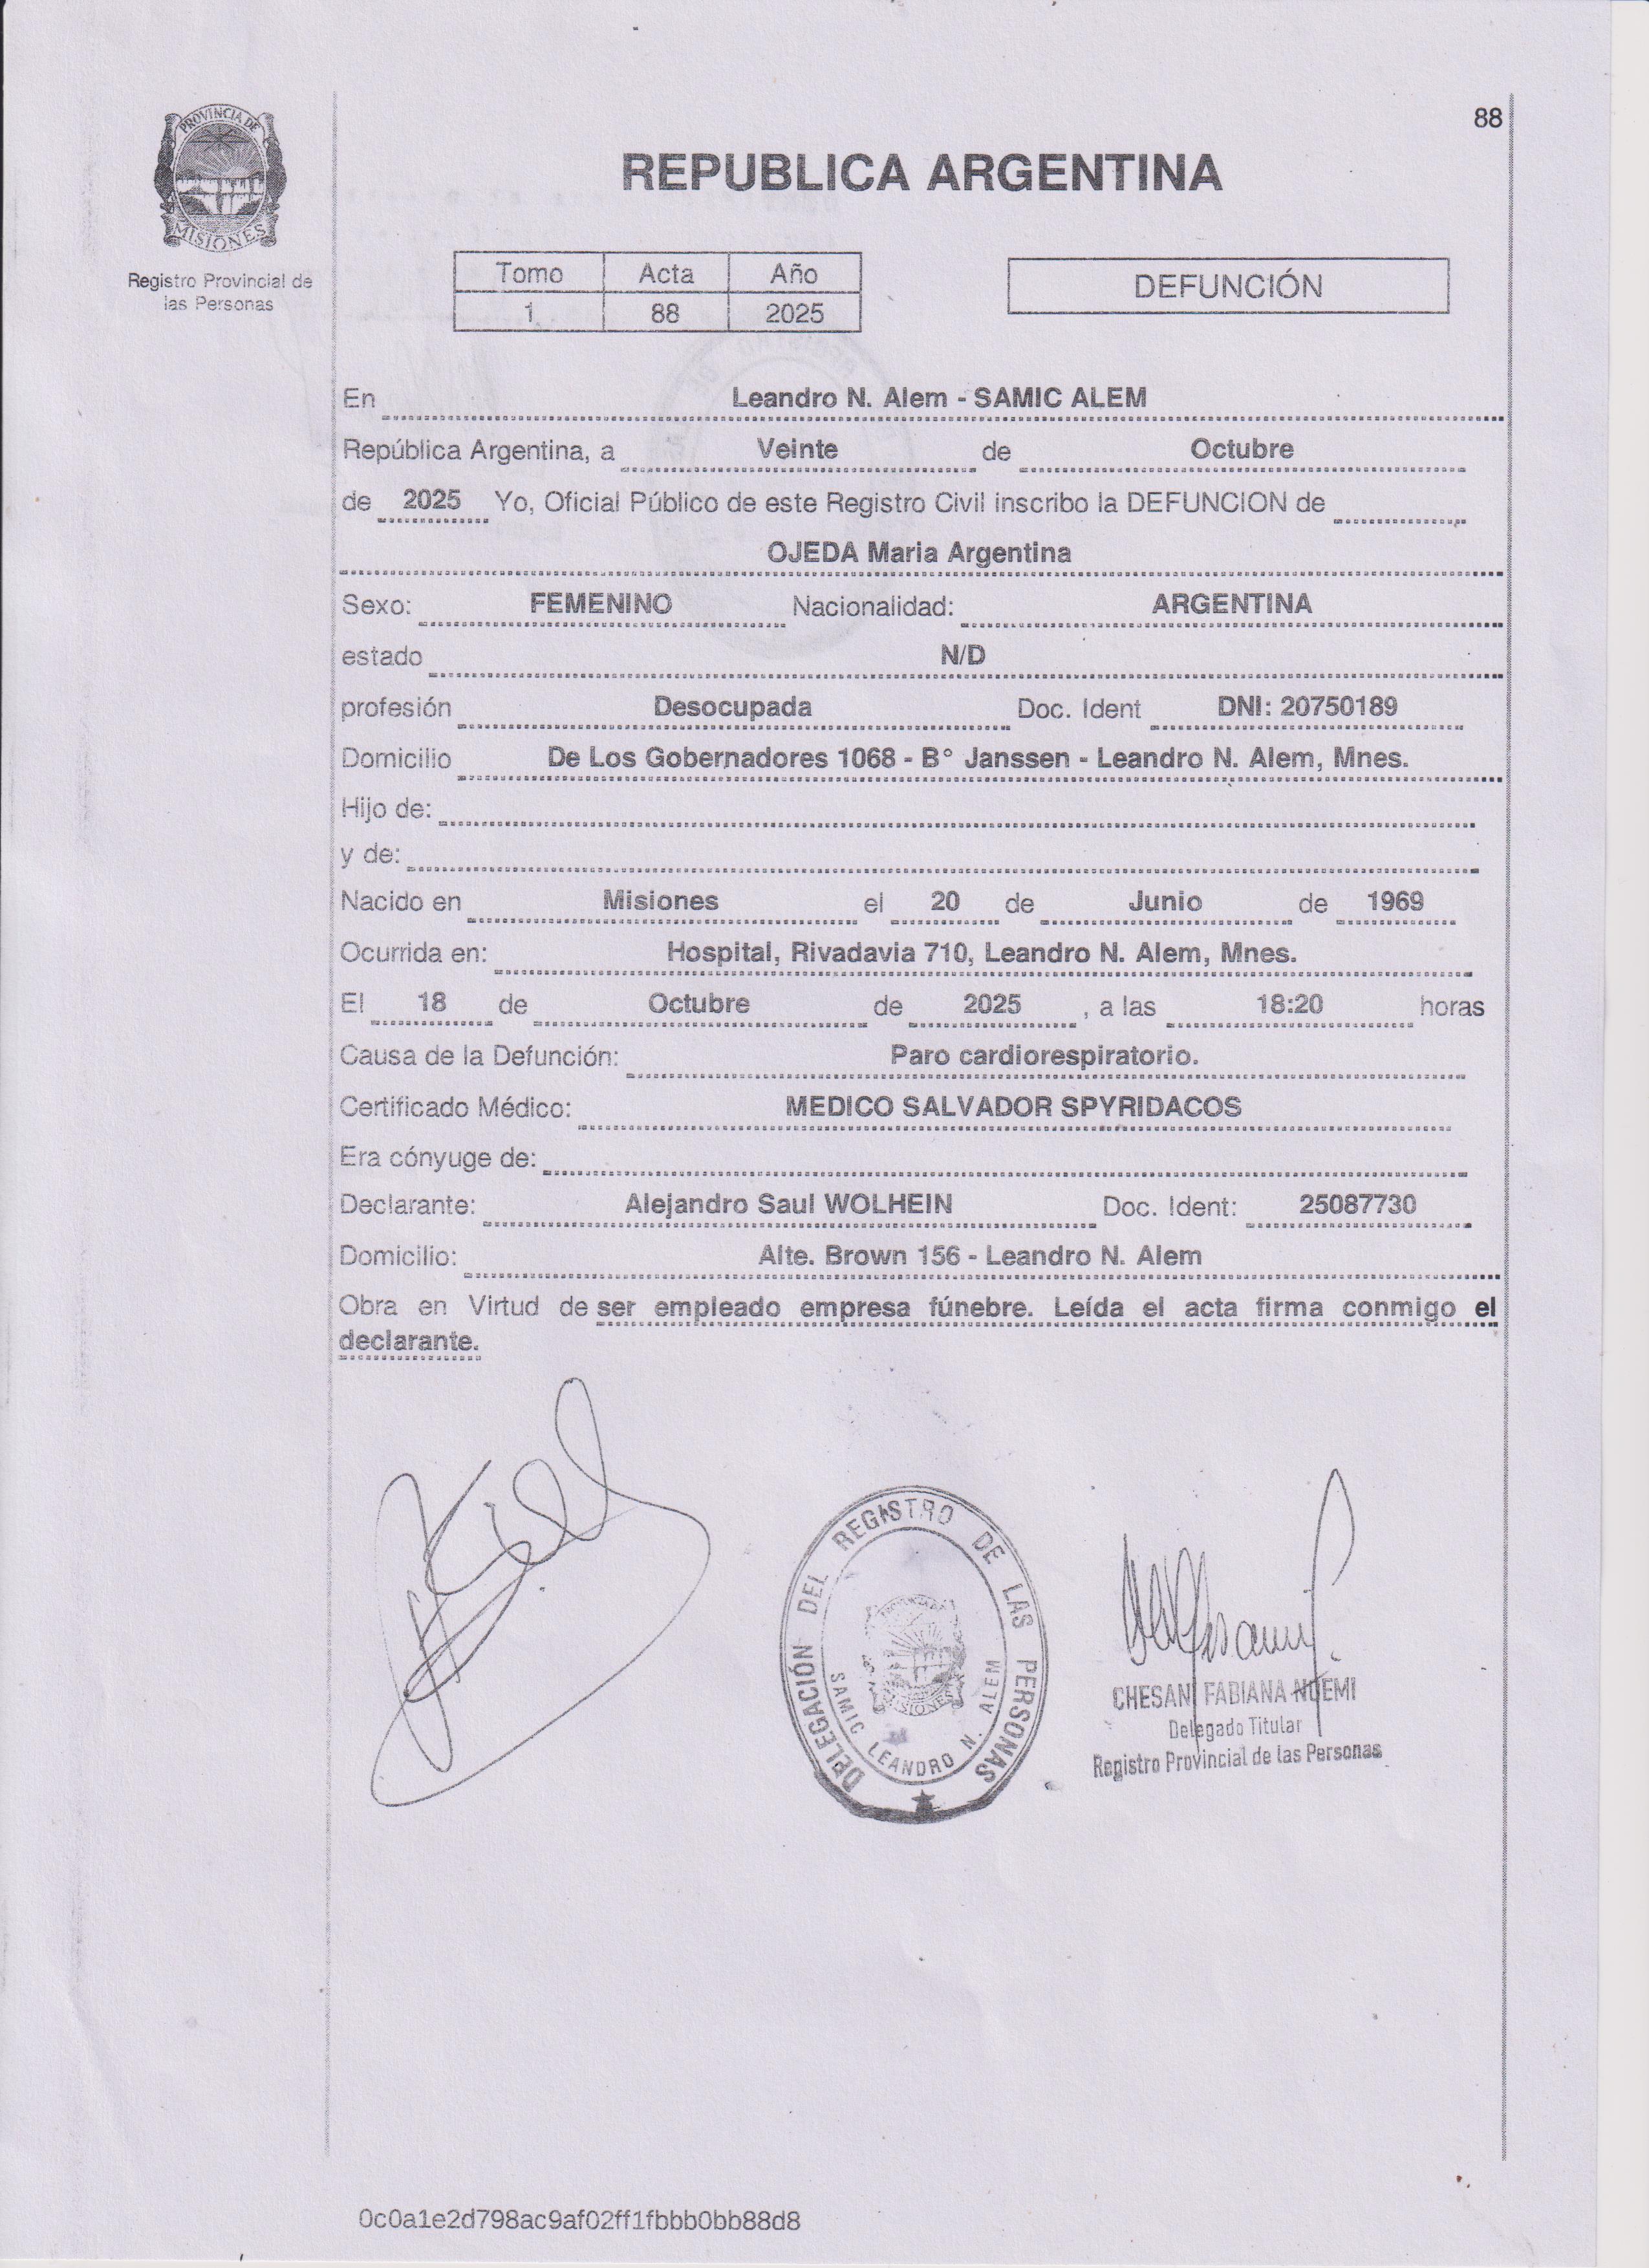 88
PROVINCIA DE
MISIONES
REPUBLICA ARGENTINA
Registro Provincial de
las Personas
Tomo Acta Año
1 88 2025
DEFUNCIÓN
En Leandro N. Alem - SAMIC ALEM
República Argentina, a Veinte de Octubre
de 2025 Yo, Oficial Público de este Registro Civil inscribo la DEFUNCION de
OJEDA Maria Argentina
Sexo: FEMENINO Nacionalidad: ARGENTINA
estado N/D
profesión Desocupada Doc. Ident DNI: 20750189
Domicilio De Los Gobernadores 1068 - B° Janssen - Leandro N. Alem, Mnes.
Hijo de:
y de:
Nacido en Misiones el 20 de Junio de 1969
Ocurrida en: Hospital, Rivadavia 710, Leandro N. Alem, Mnes.
El 18 de Octubre de 2025 , a las 18:20 horas
Causa de la Defunción: Paro cardiorespiratorio.
Certificado Médico: MEDICO SALVADOR SPYRIDACOS
Era cónyuge de:
Declarante: Alejandro Saul WOLHEIN Doc. Ident: 25087730
Domicilio: Alte. Brown 156 - Leandro N. Alem
Obra en Virtud de ser empleado empresa fúnebre. Leída el acta firma conmigo el
declarante.
DELEGACIÓN DEL REGISTRO DE LAS PERSONAS
SAMIC LEANDRO N. ALEM
MISIONES
CHESANI FABIANA NOEMI
Delegado Titular
Registro Provincial de las Personas
0c0a1e2d798ac9af02ff1fbbb0bb88d8